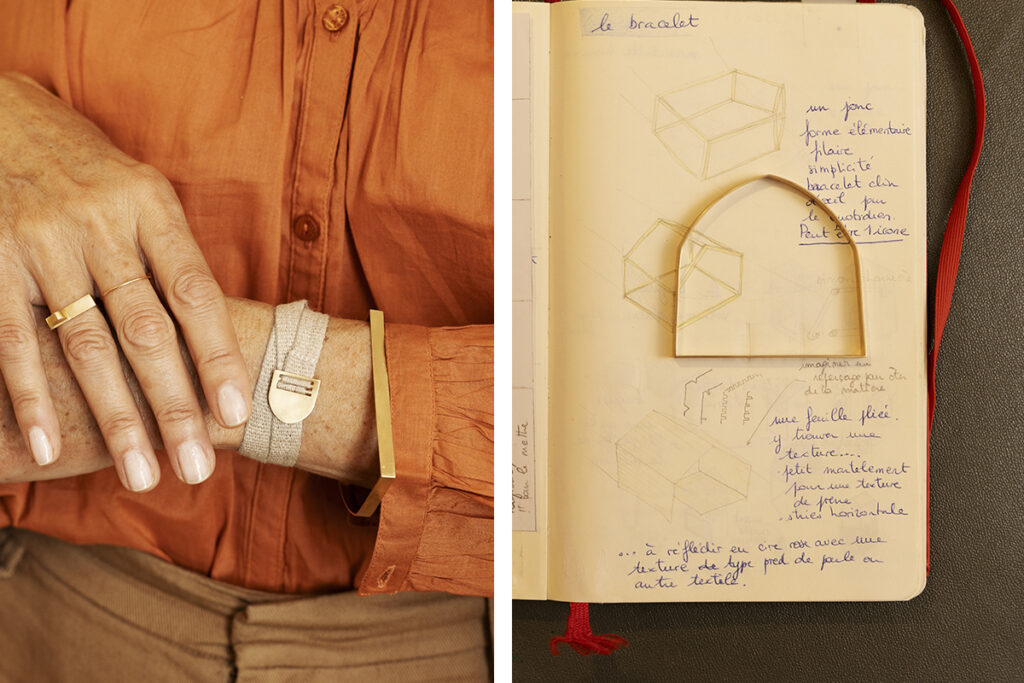 le bracelet
un jonc
forme élémentaire
plaire
simplicité
bracelet clin
d'oeil pour
le quotidien.
Peut être 1 icone
imaginer un
par ôter
de la matière
une feuille pliée.
y trouver une
texture....
petit martelement
pour une texture
de
. stries horizontale
... à réfléchir en cire rose avec une
texture de type pied de poule ou
autre textile.